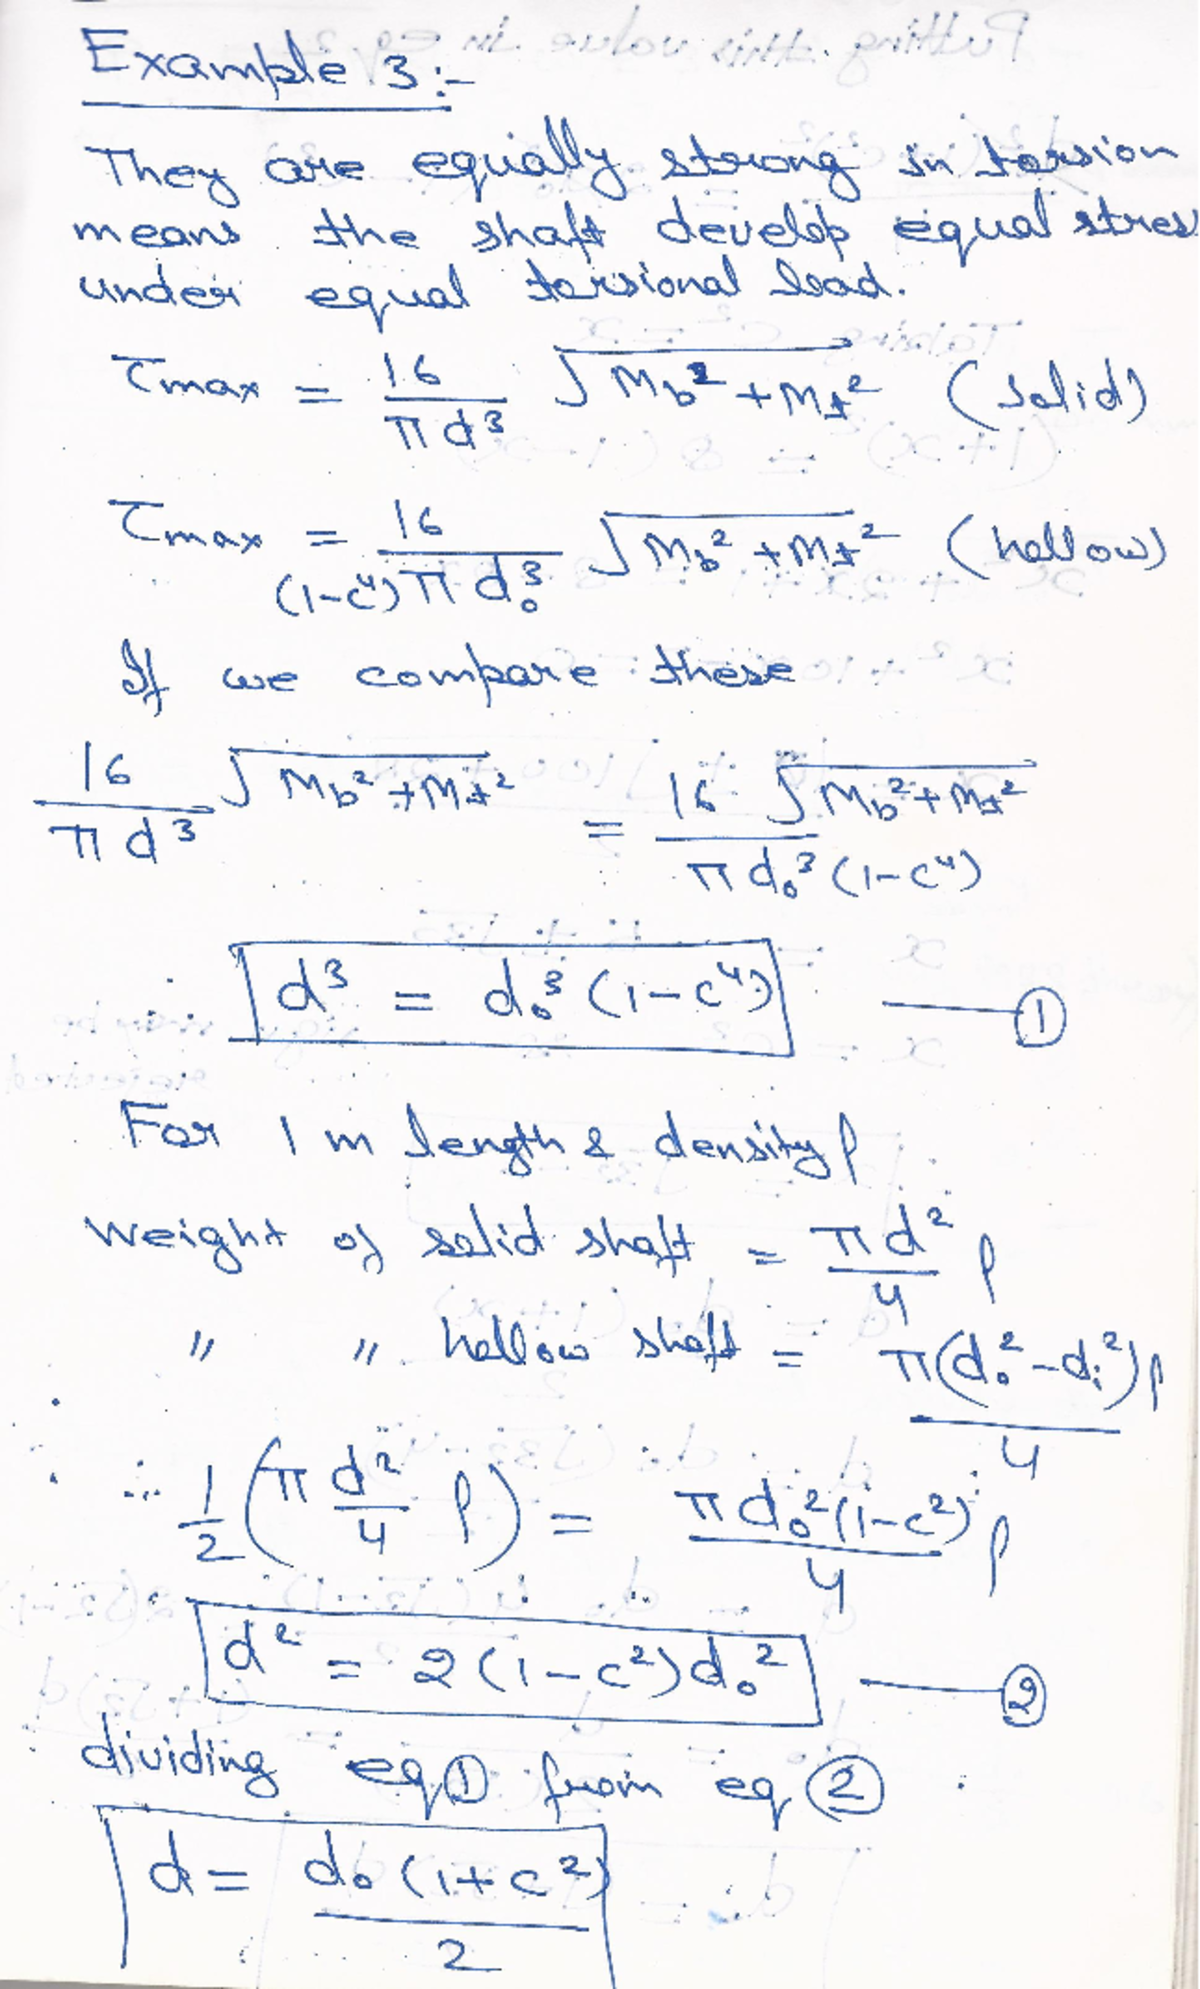 Example 3:-
They are equally strong in torsion
means the shaft develop equal stres
under equal torsional load.
τmax = 16/πd³ √Mb²+Mt² (solid)
τmax = 16/(1-c⁴)πdo³ √Mb²+Mt² (hollow)
If we compare these
16/πd³ √Mb²+Mt² = 16 √Mb²+Mt²/πdo³(1-c⁴)
∴ d³ = do³(1-c⁴) ——— ①
For 1 m length & density ρ
Weight of solid shaft = πd²/4 ρ
" " hollow shaft = π(do²-di²)ρ/4
∴ 1/2 (π d²/4 ρ) = πdo²(1-c²)/4 ρ
d² = 2(1-c²)do² ——— ②
dividing eq ① from eq ②
d = do(1+c²)/2